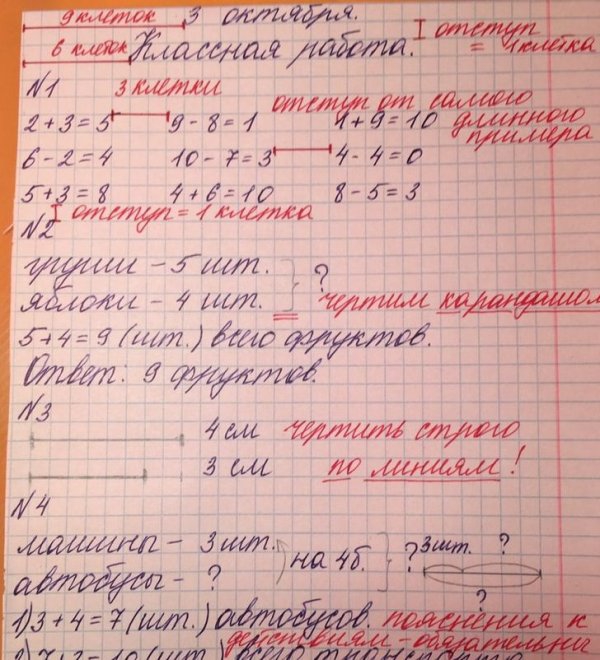 9 клеток 3 октября.
6 клеток Классная работа. отступ = 1 клетка
№1 3 клетки
отступ от самого длинного примера
2 + 3 = 5 9 - 8 = 1 1 + 9 = 10
6 - 2 = 4 10 - 7 = 3 4 - 4 = 0
5 + 3 = 8 4 + 6 = 10 8 - 5 = 3
отступ = 1 клетка
№2
груши - 5 шт. ?
яблоки - 4 шт. чертим карандашом
5 + 4 = 9 (шт.) всего фруктов.
Ответ: 9 фруктов.
№3
4 см чертить строго
3 см по линиям!
№4
машины - 3 шт. на 4 б. ? 3 шт. ?
автобусы - ? ?
1) 3 + 4 = 7 (шт.) автобусов. пояснения к
действиям - обязательны
2) 7 + 3 = 10 (шт.) всего